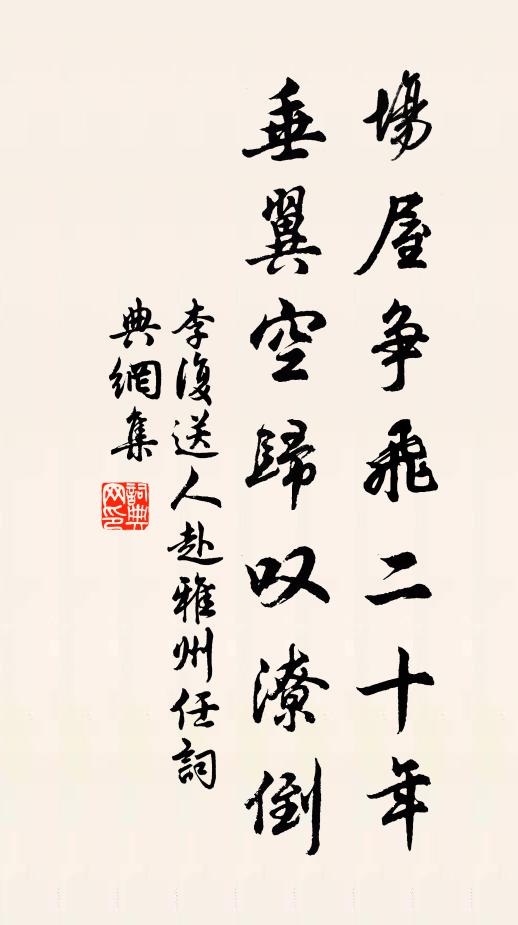 場屋争飛二十年
垂翼空歸叹潦倒
李復送人赴雅州任詞
典網集
詞典网印